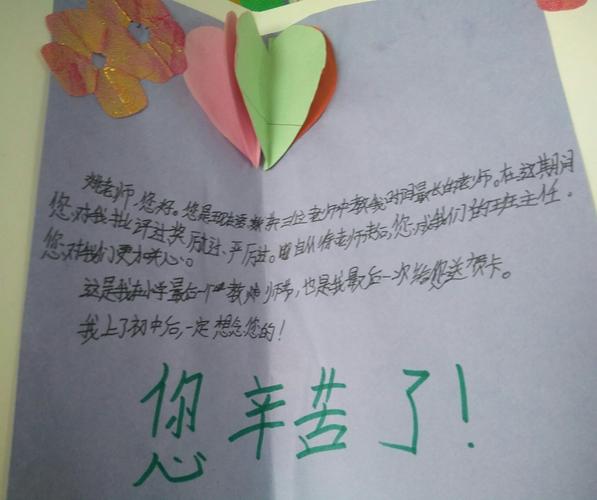 老师,您好。您是现在教我三位老师中教我时间最长的老师。在这期间
您对我批评过、奖励过、严厉过。自从徐老师走后,您成我们的班主任。
您对我们更加关心。
这是我在小学最后一个教师节,也是我最后一次给您送贺卡。
我上了初中后,一定想念您的!
您辛苦了!